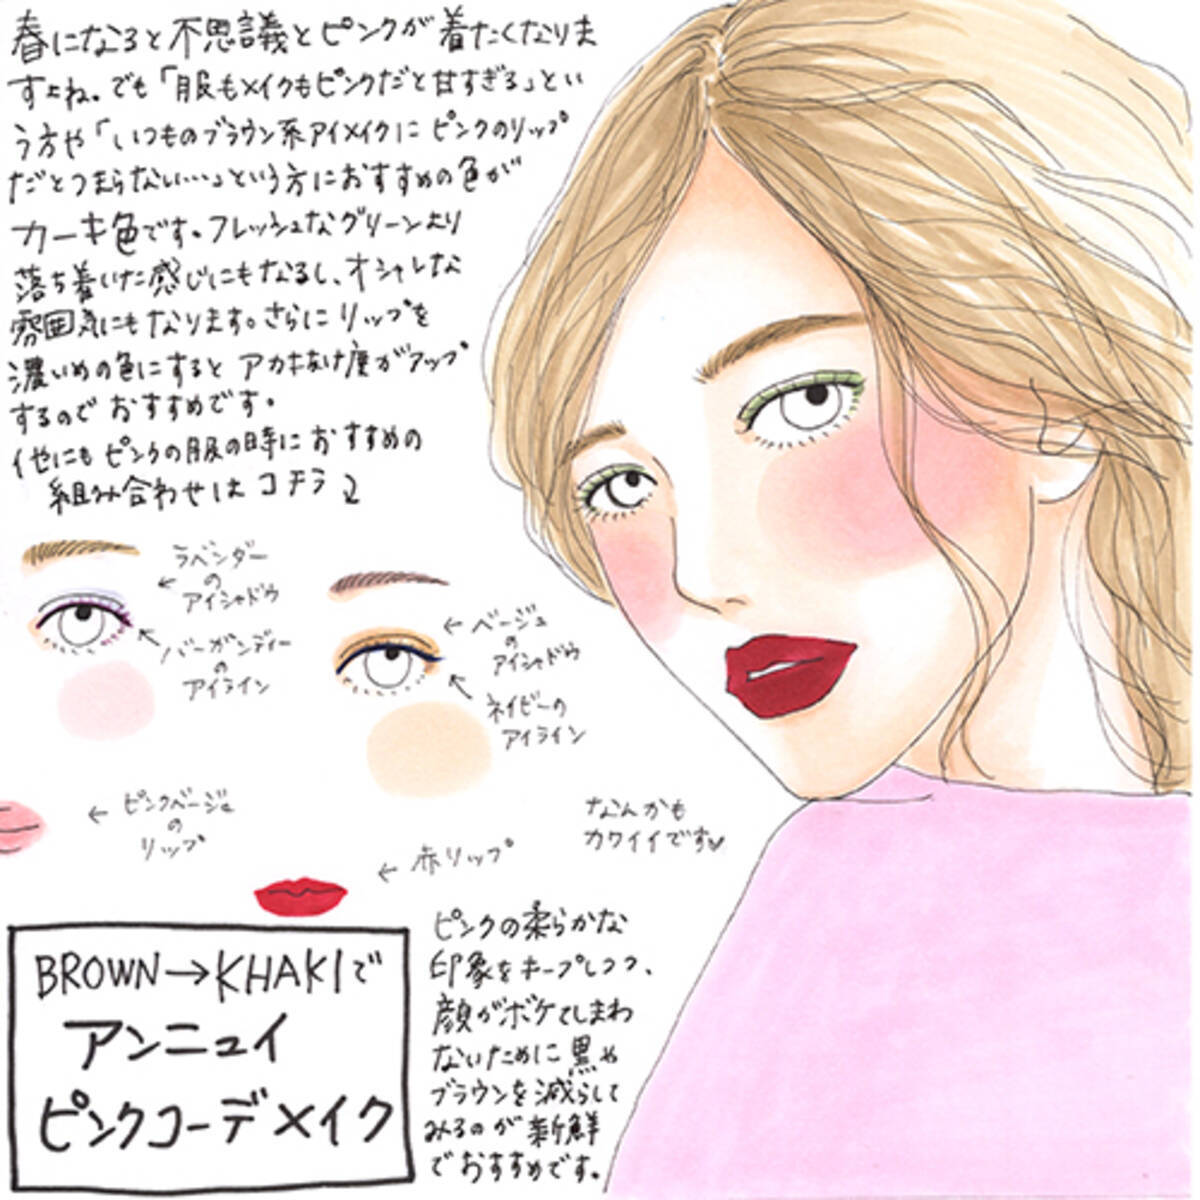 春になると不思議とピンクが着たくなりま
すよね。でも「服もメイクもピンクだと甘すぎる」とい
う方や「いつものブラウン系アイメイクにピンクのリップ
だとつまらない…」という方におすすめの色が
カーキ色です。フレッシュなグリーンより
落ち着いた感じにもなるし、オシャレな
雰囲気にもなります。さらにリップを
濃いめの色にするとアカぬけ度がアップ
するのでおすすめです。
他にもピンクの服の時におすすめの
組み合わせはコチラ⤵
ラベンダー
の
←アイシャドウ
バーガンディー
の
アイライン
←ベージュ
の
アイシャドウ
ネイビーの
アイライン
←ピンクベージュ
の
リップ
←赤リップ
なんかも
カワイイです♡
BROWN→KHAKIで
アンニュイ
ピンクコーデメイク
ピンクの柔らかな
印象をキープしつつ、
顔がボケてしまわ
ないために黒や
ブラウンを減らして
みるのが新鮮
でおすすめです。